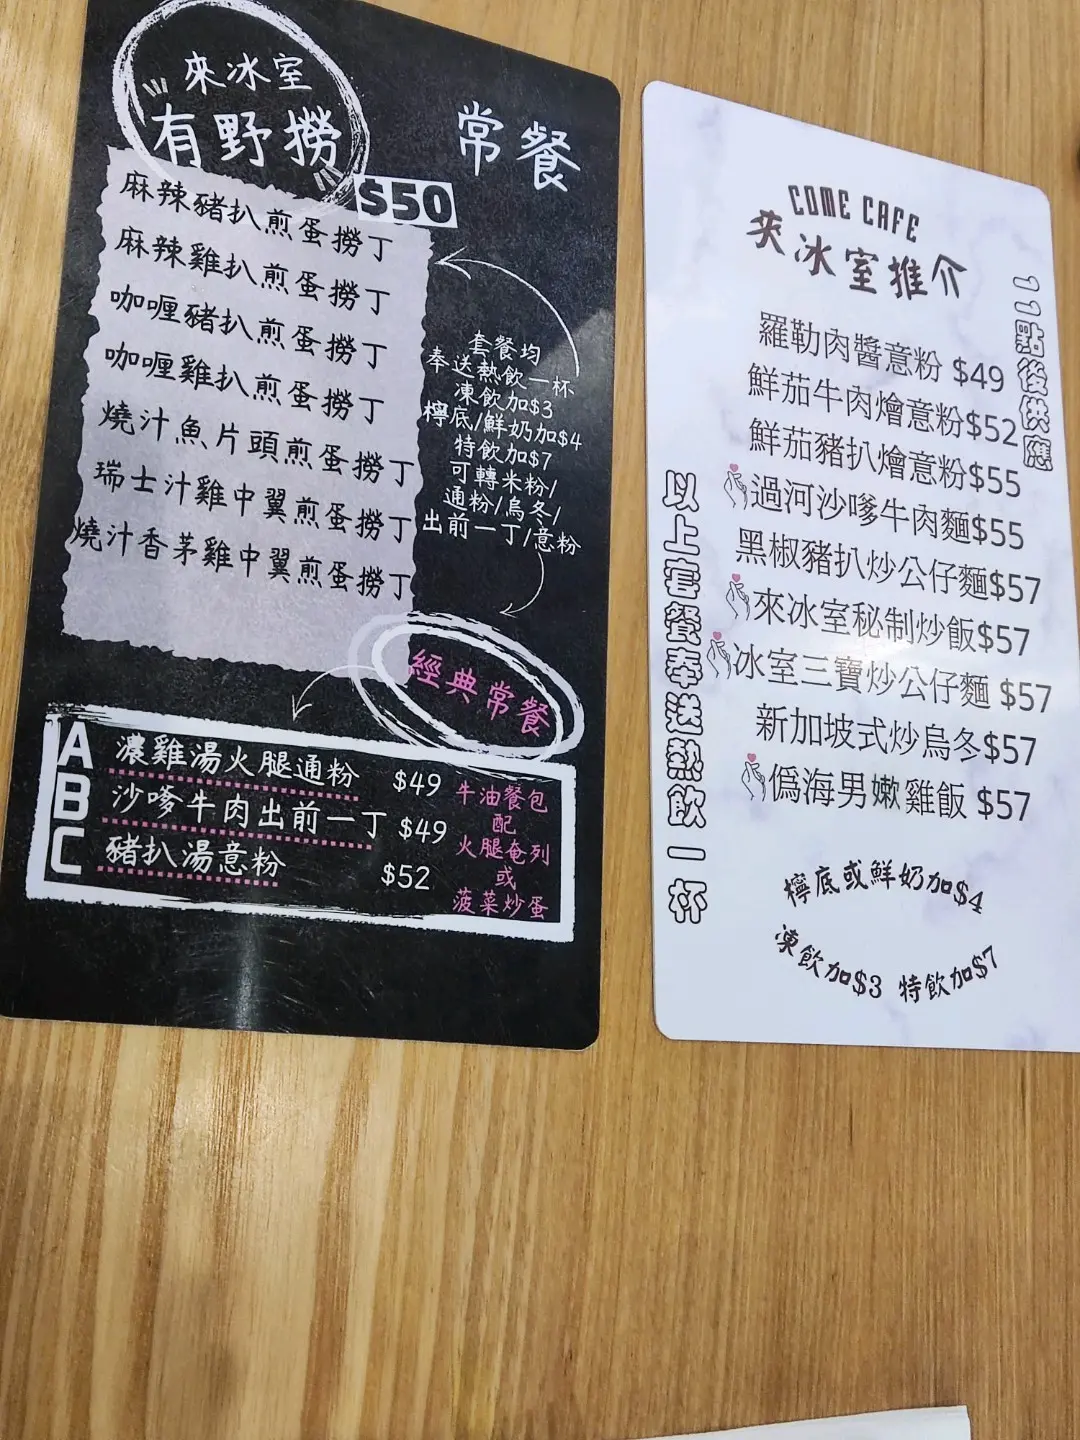 來冰室
有野撈
常餐
$50
麻辣豬扒煎蛋撈丁
麻辣雞扒煎蛋撈丁
咖喱豬扒煎蛋撈丁
咖喱雞扒煎蛋撈丁
燒汁魚片頭煎蛋撈丁
瑞士汁雞中翼煎蛋撈丁
燒汁香茅雞中翼煎蛋撈丁
套餐均
奉送熱飲一杯
凍飲加$3
檸底/鮮奶加$4
特飲加$7
可轉米粉/
通粉/烏冬/
出前一丁/意粉
經典常餐
A 濃雞湯火腿通粉 $49
B 沙嗲牛肉出前一丁 $49
C 豬扒湯意粉 $52
牛油餐包
配
火腿奄列
或
菠菜炒蛋
COME CAFE
來冰室推介
11點後供應
羅勒肉醬意粉 $49
鮮茄牛肉燴意粉$52
鮮茄豬扒燴意粉$55
過河沙嗲牛肉麵$55
黑椒豬扒炒公仔麵$57
來冰室秘制炒飯$57
冰室三寶炒公仔麵 $57
新加坡式炒烏冬$57
僞海男嫩雞飯 $57
以上套餐奉送熱飲一杯
檸底或鮮奶加$4
凍飲加$3 特飲加$7